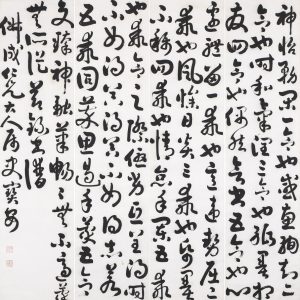 神怡務閑一合也感惠徇知二
合也時和氣潤三合也紙墨相
發四合也偶然欲書五合也心
遽體留一乖也意違勢屈二
乖也風燥日炎三乖也紙墨
不稱四乖也情怠手闌五乖
也乖合之際優劣互差得時
不如得器得器不如得志若
五乖同萃思遏手蒙五合
交臻神融筆暢暢無不適蒙
無所從節錄書譜
成仁兄大人属史寶安